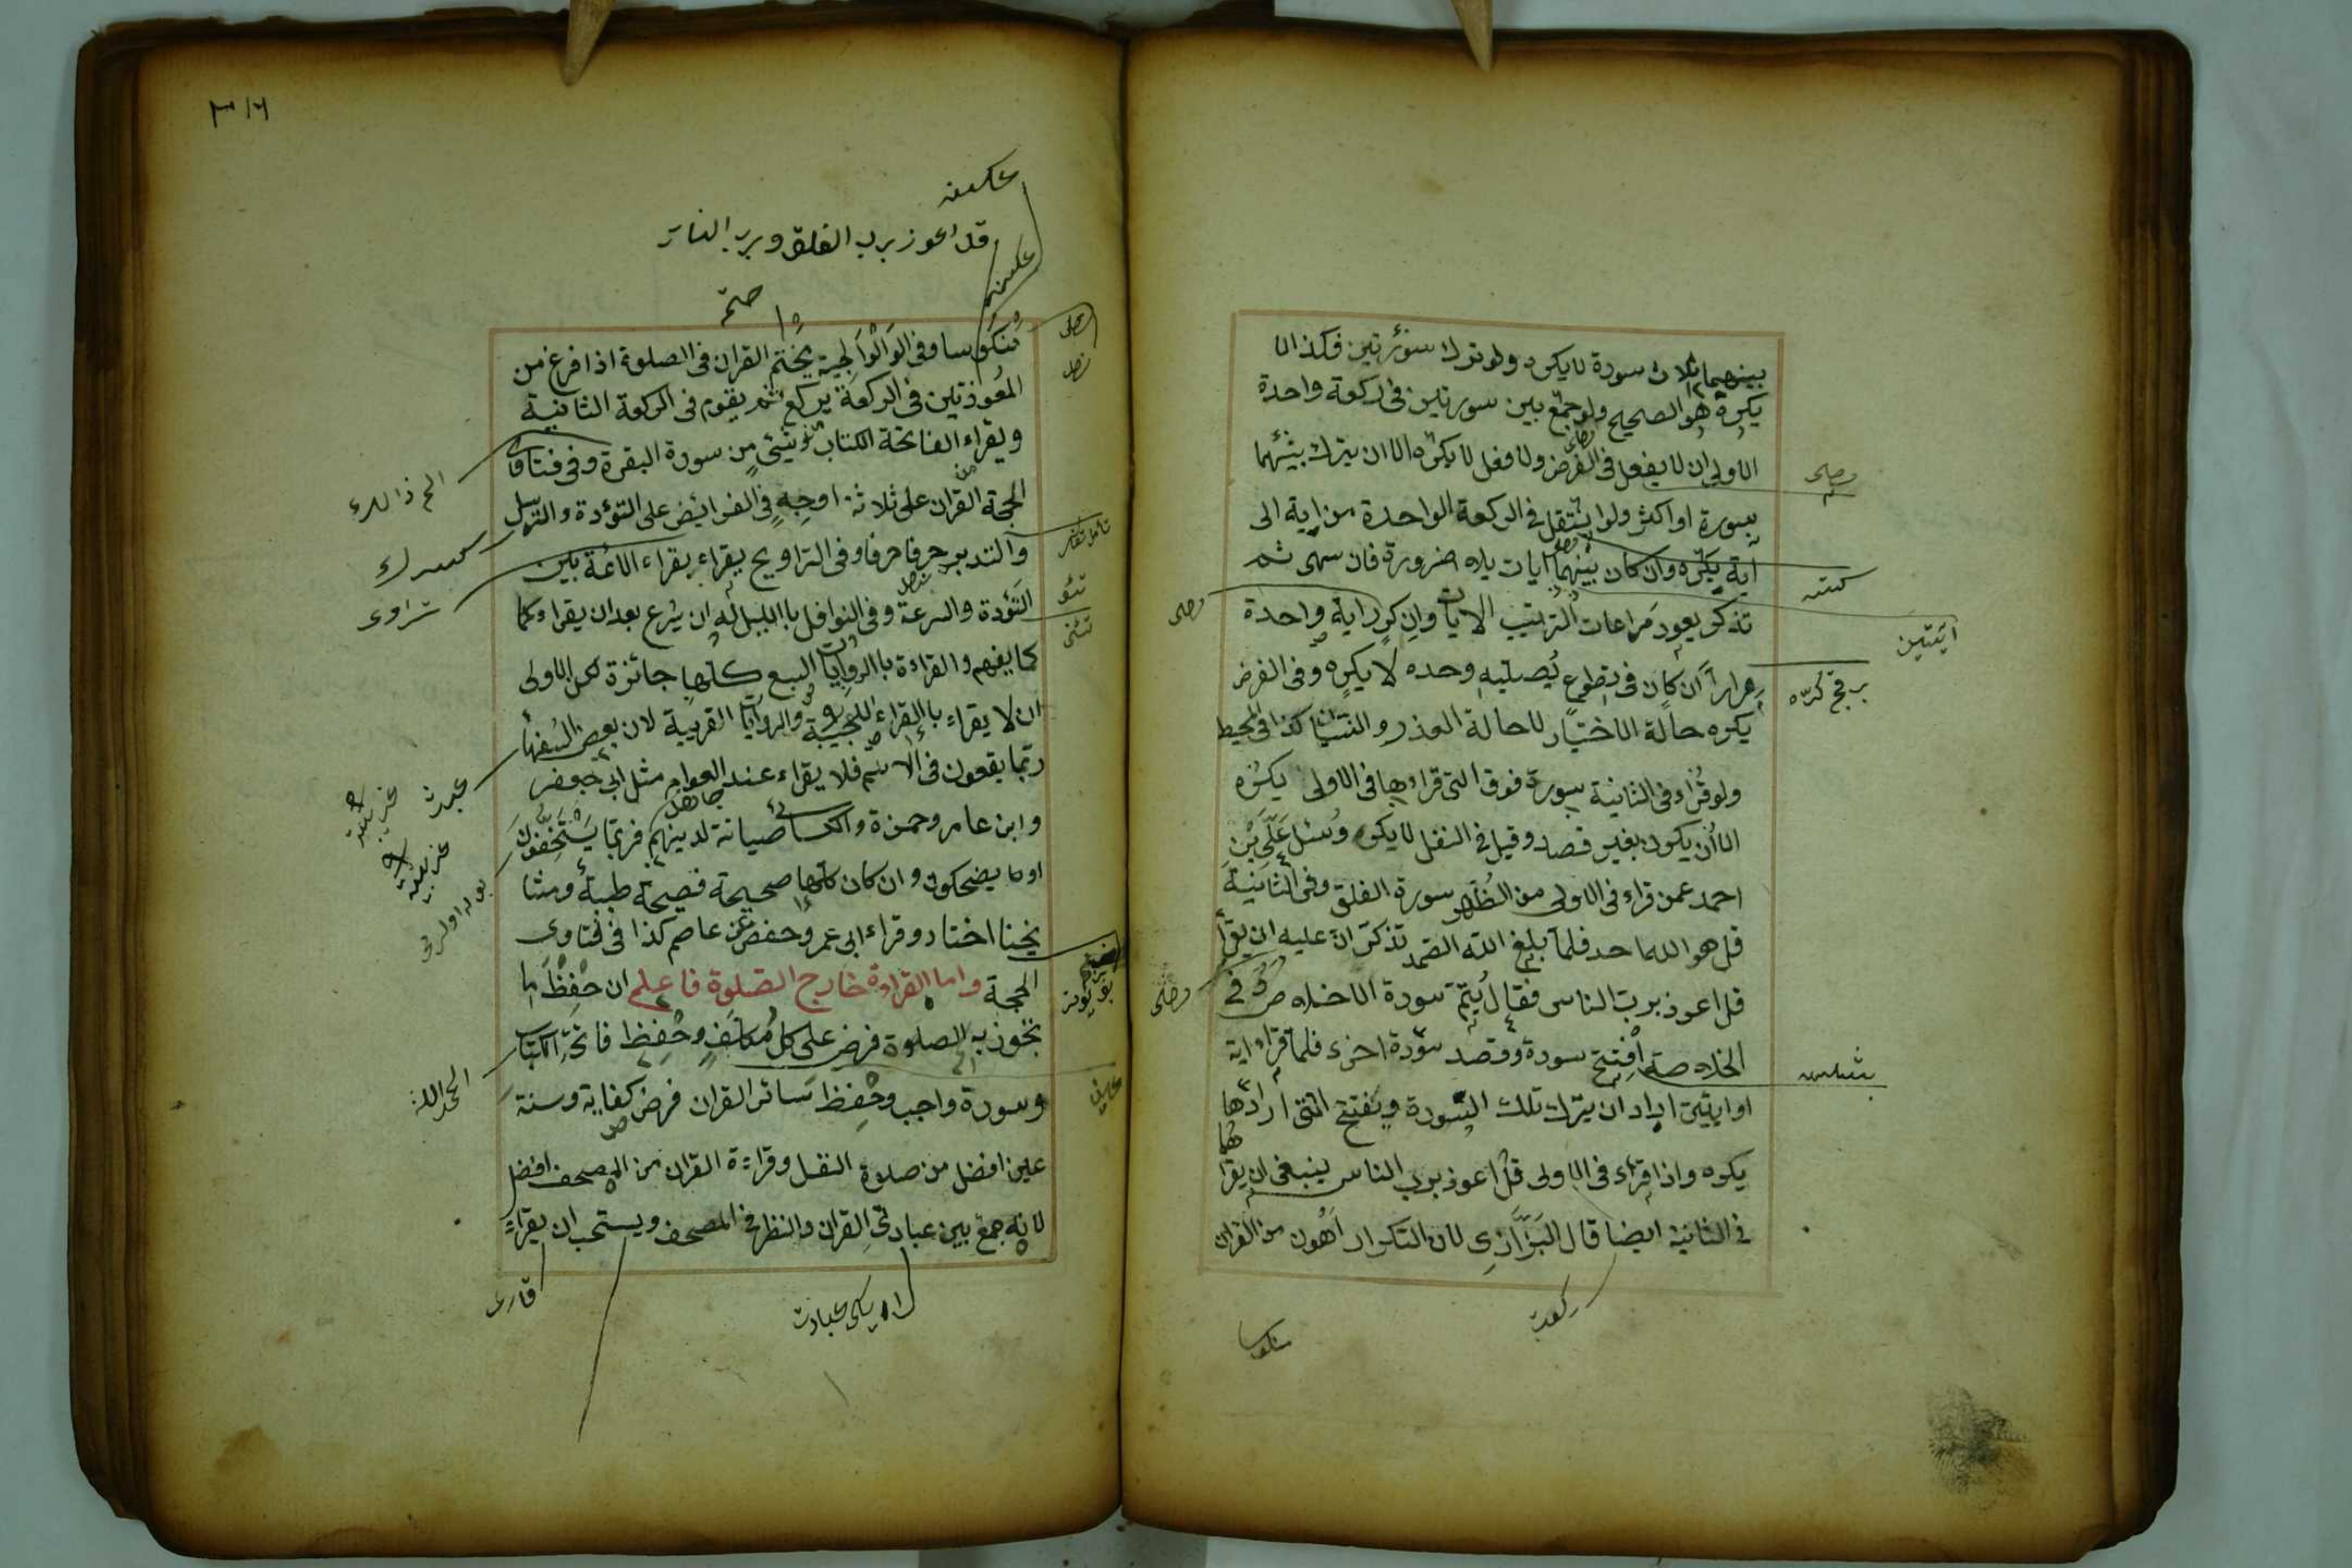 بينهما ثلاث سورة لا يكره ولو ترك سورتين فكذا لا
يكره هو الصحيح ولو جمع بين سورتين في ركعة واحدة
الاولى ان لا يفعل في الفرض ولا فعل لا يكره الا ان يترك بينهما
سورة او اكثر ولو انتقل في الركعة الواحدة من اية الى
اية يكره وان كان بينهما ايات بلا ضرورة فان سهى ثم
تذكر يعود مراعات الترتيب الايات وان كرر اية واحدة
مرارا ان كان في تطوع يصليه وحده لا يكره وفي الفرض
يكره حالة الاختيار لا حالة العذر والنسيان كذا في المحيط
ولو قراء في الثانية سورة فوق التي قراءها في الاولى يكره
الا ان يكون بغير قصد وقيل في النفل لا يكره وسئل علي بن
احمد عمن قراء في الاولى من الظهر سورة الفلق وفي الثانية
قل هو الله احد فلما بلغ الله الصمد تذكر ان عليه ان يقرأ
قل اعوذ برب الناس فقال يتم سورة الاخلاص في
الخلاصة افتتح سورة وقصد سورة اخرى فلما قراء اية
او ايتين اراد ان يترك تلك السورة ويفتتح التي ارادها
يكره واذا قراء في الاولى قل اعوذ برب الناس ينبغي ان يقرأ
في الثانية ايضا قال البزازي لان التكرار اهون من القران
ايتين
ركعت
منكوسا
٣١٦
قل اعوذ برب الفلق وبرب الناس
منكوسا وفي الوالوالجية يختم القران في الصلوة اذا فرغ من
المعوذتين في الركعة يركع ثم يقوم في الركعة الثانية
ويقراء الفاتحة الكتاب وشئ من سورة البقرة وفي فتاوى
الحجة القران على ثلاثة اوجه في الفرائض على التؤدة والترسل
والتدبر حرفا حرفا وفي التراويح يقراء بقراء الائمة بين
التؤدة والسرعة وفي النوافل بالليل له ان يسرع بعد ان يقراء كما
كما يفهم والقراءة بالروايات السبع كلها جائزة لكن الاولى
ان لا يقراء بالقراء العجيبة والروايات الغريبة لان بعض السفهاء
ربما يقعون في الاثم فلا يقراء عند العوام مثل ابي جعفر
وابن عامر وحمزة والكسائي صيانة لدينهم فربما يستخفون
او ما يضحكون وان كان كلها صحيحة فصيحة طيبة ومشا
يخنا اختاروا قراء ابي عمر وحفص عن عاصم كذا في فتاوى
الحجة واما القراءة خارج الصلوة فاعلم ان حفظ ما
تجوز به الصلوة فرض على كل مكلف وحفظ فاتحة الكتاب
وسورة واجب وحفظ سائر القران فرض كفاية وسنة
عين افضل من صلوة النفل وقراءة القران من المصحف افضل
لانه جمع بين عبادتي القران والنظر في المصحف ويستحب ان يقراء
الحمد لله
قارى
ايكى عبادت